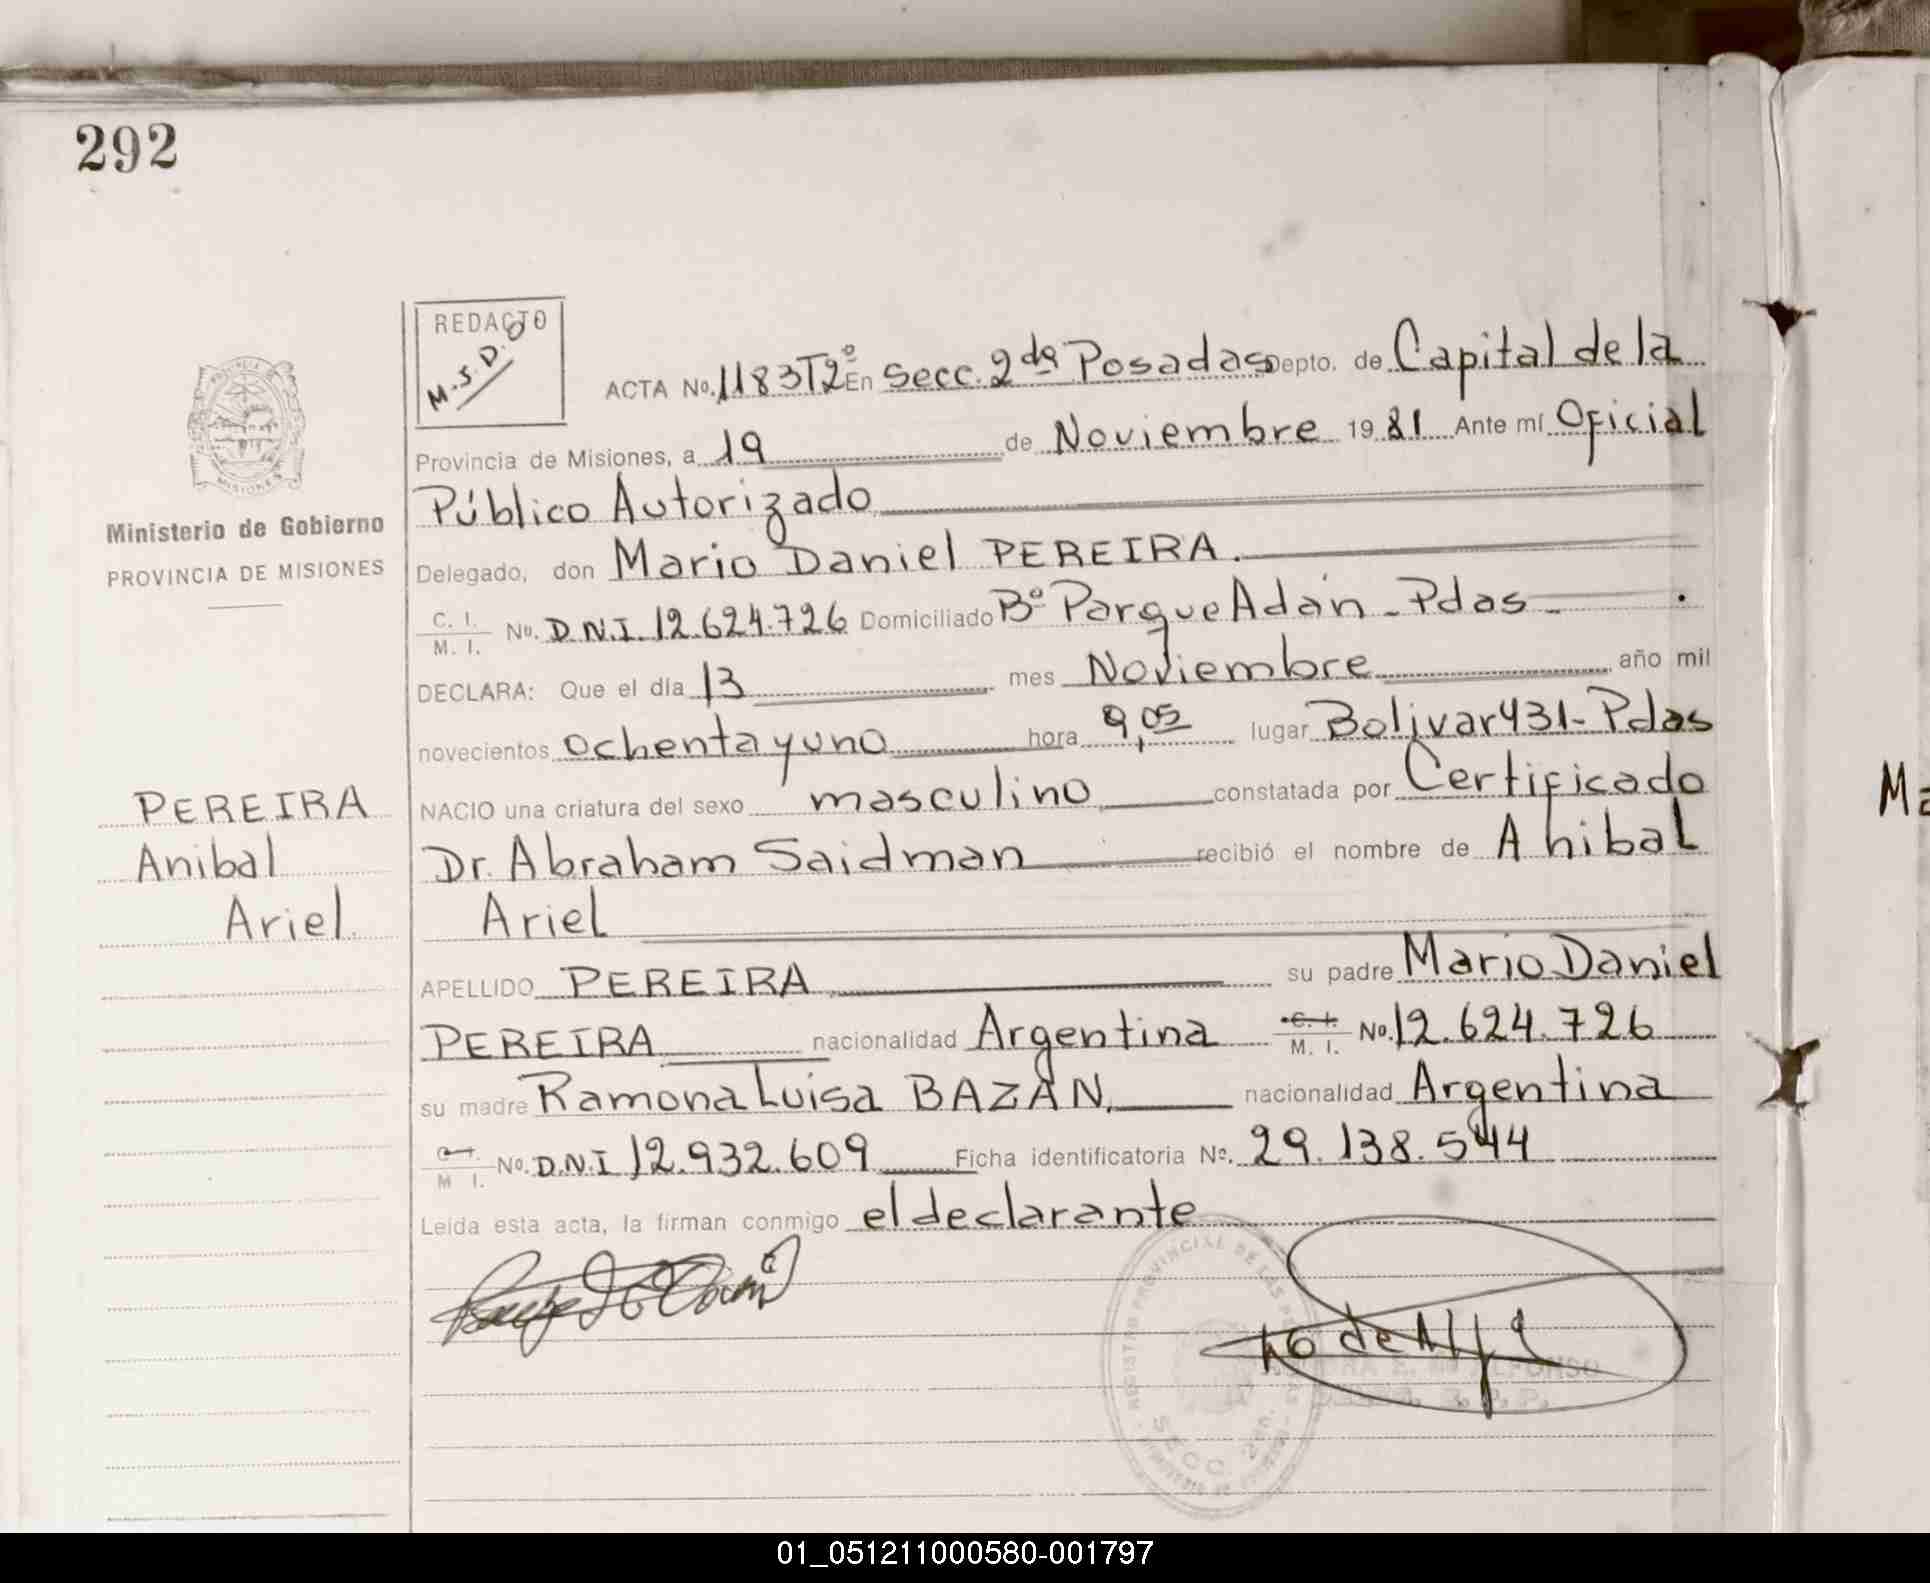 292
REDACTO
M.S.D.O
ACTA No. 1183T2º En Secc. 2da Posadas Depto. de Capital de la
Provincia de Misiones, a 19 de Noviembre 1981 Ante mí Oficial
Público Autorizado
Ministerio de Gobierno
PROVINCIA DE MISIONES
Delegado, don Mario Daniel PEREIRA.
C. I.
M. I. No. D.N.I. 12.624.726 Domiciliado Bº Parque Adán - Pdas -
DECLARA: Que el día 13 mes Noviembre año mil
novecientos ochenta y uno hora 9,05 lugar Bolivar 431 - Pdas
NACIO una criatura del sexo masculino constatada por Certificado
Dr. Abraham Saidman recibió el nombre de Anibal
Ariel
PEREIRA
Anibal
Ariel
APELLIDO PEREIRA su padre Mario Daniel
PEREIRA nacionalidad Argentina C. I. M. I. No. 12.624.726
su madre Ramona Luisa BAZÁN. nacionalidad Argentina
M I. No. D.N.I 12.932.609 Ficha identificatoria Nº. 29.138.544
Leída esta acta, la firman conmigo el declarante
REGISTRO PROVINCIAL DE LAS
SECC. 2da.
Ma
01_051211000580-001797